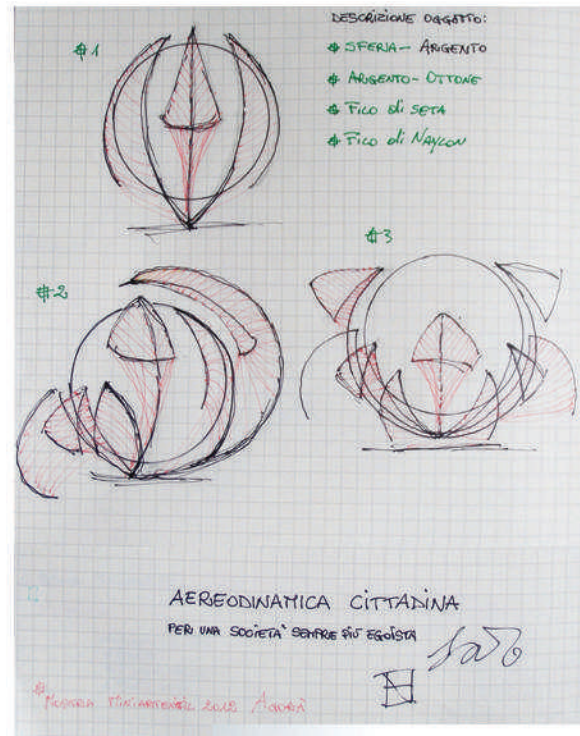 DESCRIZIONE OGGETTO:
#1
* SFERA - ARGENTO
* ARGENTO - OTTONE
* FILO di SETA
* FILO di NAYLON
#3
#2
AEREODINAMICA CITTADINA
PER UNA SOCIETA' SEMPRE PIÙ EGOISTA
* MOSTRA MINIARTEXTIL 2012